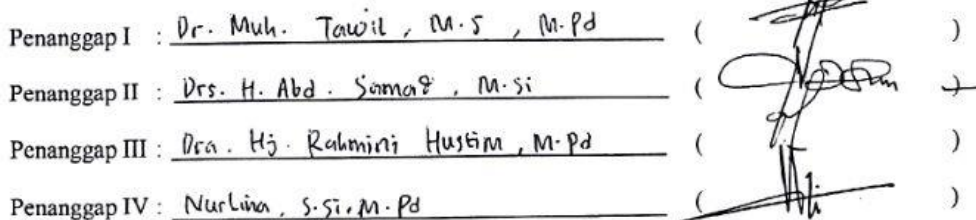 Penanggap I : Dr. Muh. Tawil, M.S, M.Pd ( )
Penanggap II : Drs. H. Abd. Samad, M.Si ( )
Penanggap III : Dra. Hj. Rahmini Hustim, M.Pd ( )
Penanggap IV : Nurlina, S.Si. M.Pd ( )